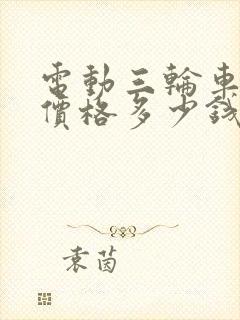 電動三輪車
價格多少錢
袁茵